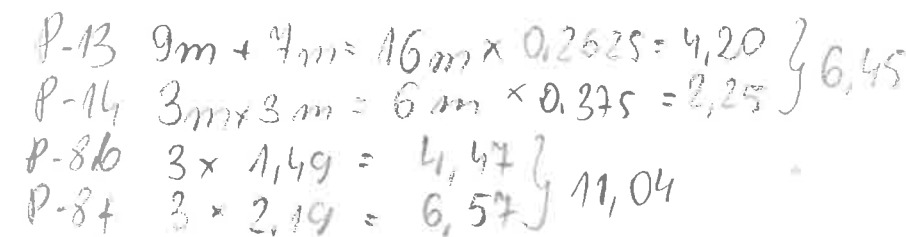 P-13 9m + 7m = 16m × 0,2625 = 4,20 } 6,45
P-14 3m × 3m = 6m × 0,375 = 2,25
P-86 3 × 1,49 = 4,47 } 11,04
P-87 3 × 2,19 = 6,57